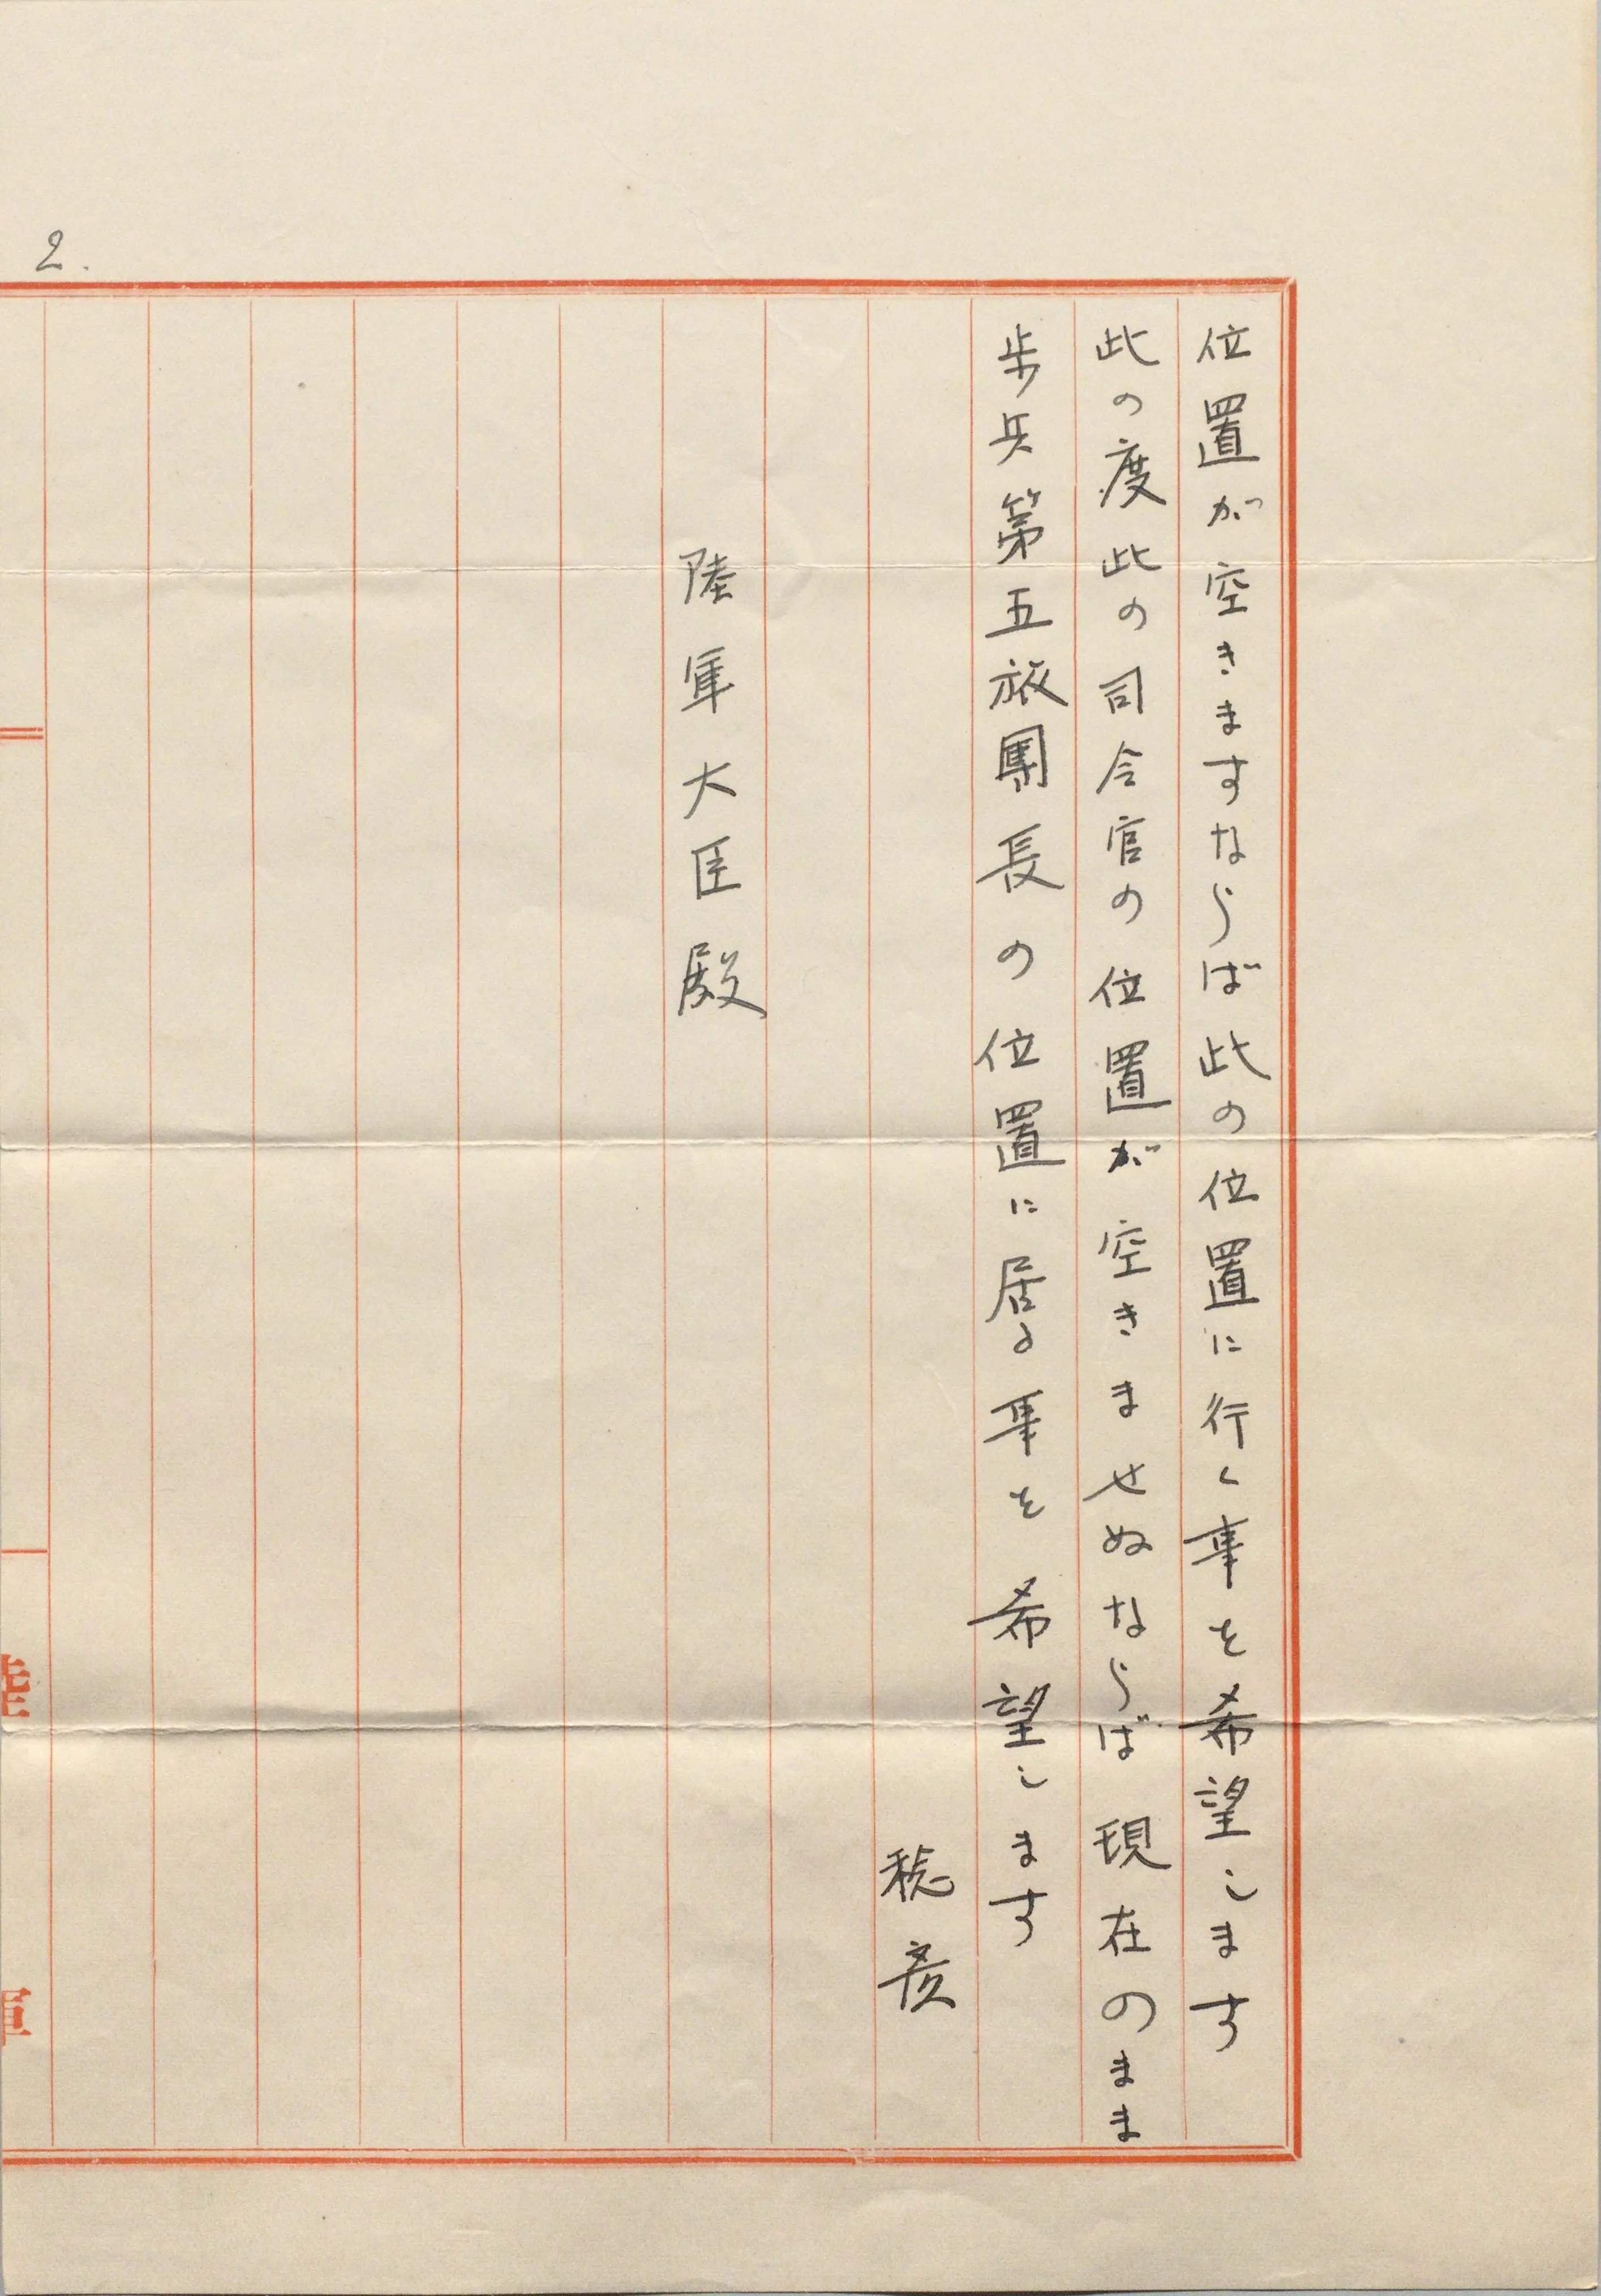 位置が空きますならば此の位置に行く事を希望します
此の度此の司令官の位置が空きませぬならば現在のまま
歩兵第五旅團長の位置に居る事を希望します
稔彦
陸軍大臣殿
2.
陸軍